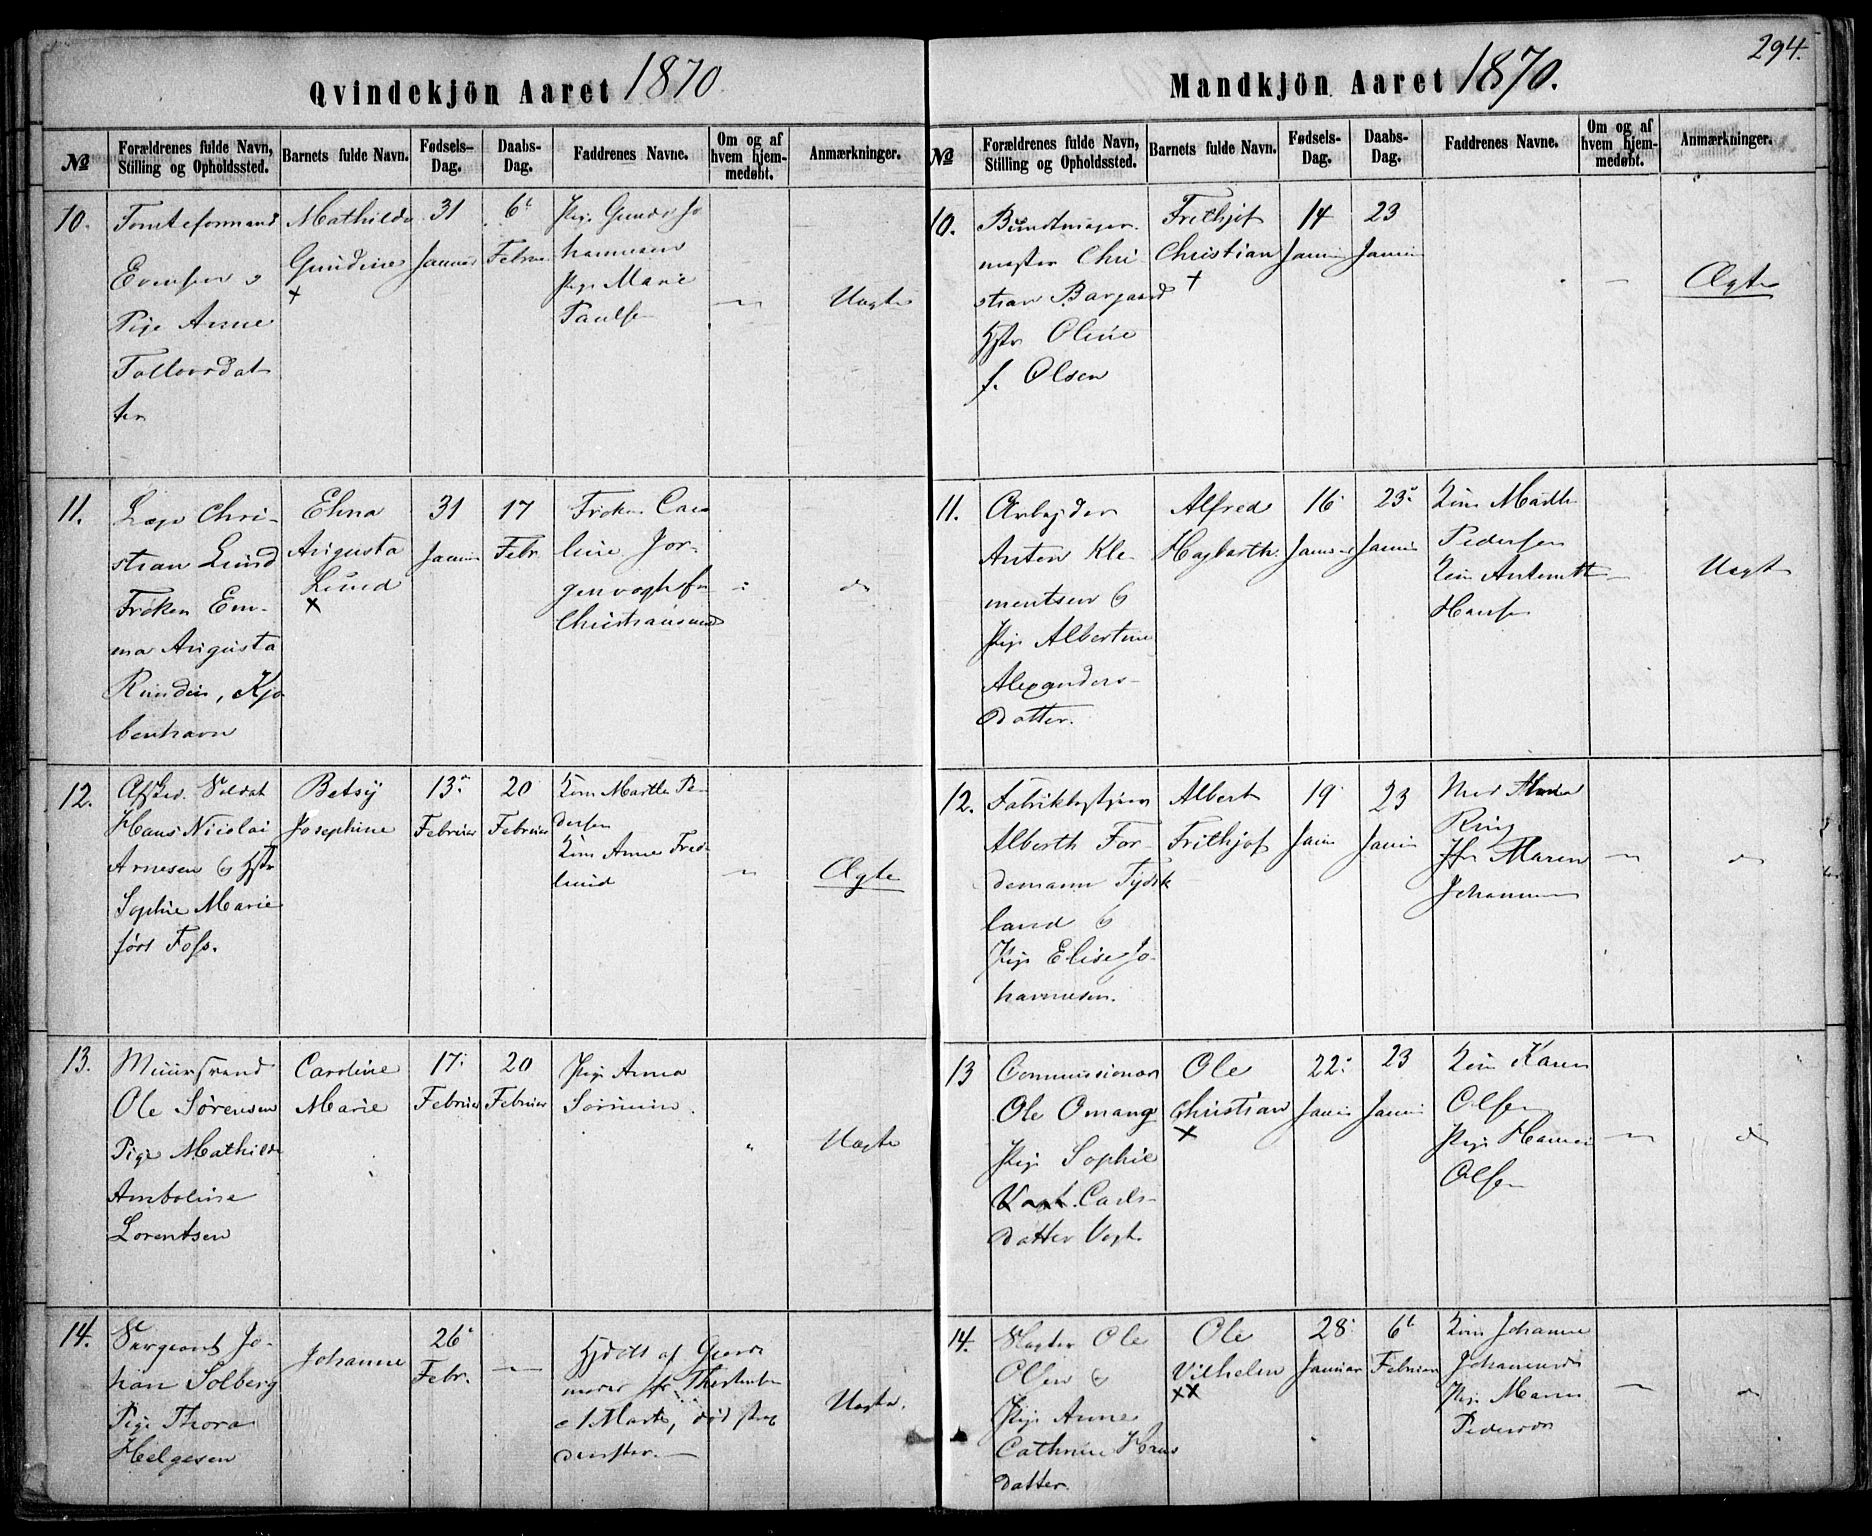 294.
Qvindekjön Aaret 1870
№
Forældrenes fulde Navn,
Stilling og Opholdssted.
Barnets fulde Navn.
Fødsels-
Dag.
Daabs-
Dag.
Faddrenes Navne.
Om og af
hvem hjem-
medøbt.
Anmærkninger.
10.
Tomteformand
Evensen
Pige Anne
Tollevsdat
ter
Mathilde
Gundine
+
31
Januar
6t
Februar
Pige
hannesen
Pige Marie
Paulse
Uægte
11.
Læge Chri-
stian Lund
Frøken Em-
ma Augusta
Kjø
benhavn
Elina
Augusta
Lund
x
31
Januar
17
Febr.
Frøken Caro
line Jør-
Christiansund
do
12.
Afsked. Soldat
Hans Nicolai
Arnesen & Hstr
Sophie Marie
født Foss.
Betsy
Josephine
13
Februar
20
Februar
Kone Marthe Pe
dersen
Kone Anne Fred
lund
Ægte
13.
Muursvend
Ole Sørensen
Pige Mathilde
Amboline
Lorentsen
Caroline
Marie
17
Februar
20
Februar
Pige Anna
Uægte
14.
Sergeant Jo-
han Solberg
Pige Thora
Helgesen
Johanne
26
Febr.
Hjdøbt af Gjorde
moder
1 Marts, død strax
derefter.
Uægte.
Mandkjön Aaret 1870.
№
Forældrenes fulde Navn,
Stilling og Opholdssted.
Barnets fulde Navn.
Fødsels-
Dag.
Daabs-
Dag.
Faddrenes Navne.
Om og af
hvem hjem-
medøbt.
Anmærkninger.
10.
Buntmager
mester Chri
stian Borgaard
Hstr Oline
f. Olsen
Frithjof
Christian
+
14
Januar
23
Januar
Ægte
11.
Arbejder
Anton Kle-
mentsen &
Pige Albertine
Alexanders-
datter.
Alfred
Hagbarth
16
Januar
23
Januar
Kone Marthe
Pedersen
Kone Antonette
Hansen
Uægte
12.
Fabrikbestyrer
Alberth For-
demann Tydsk
land &
Pige Elise Jo-
hannesen.
Albert
Frithjof
19
Januar
23
Januar
Ring
Jfr Maren
Johannesen
do
13
Commissionær
Ole Omang
Pige Sophie
Vogt. Carls-
datter Vogt.
Ole
Christian
x
22
Januar
23
Januar
Kone Karen
Olsen
Pige Hanna
Olsen
do
14.
Slagter Ole
Olsen &
Pige Anne
Cathrine Hans
datter.
Ole
Vilhelm
xx
28
Januar
6t
Februar
Kone Johanne
Johannesen
Pige Maren
Pedersen
do